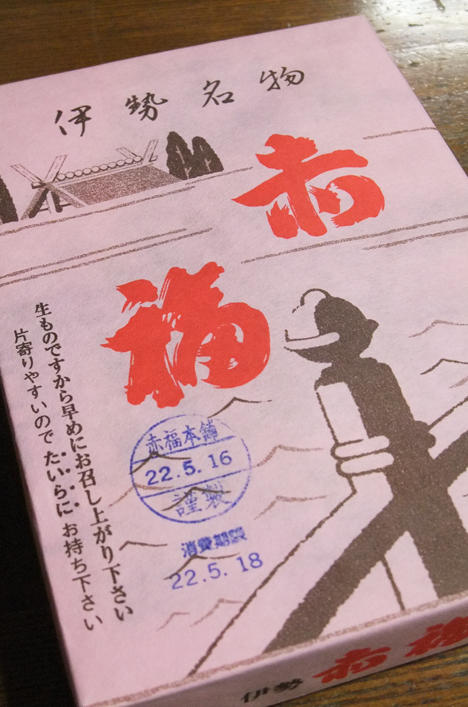 伊勢名物
赤福
生ものですから早めにお召し上がり下さい
片寄りやすいので たいらに お持ち下さい
赤福本舗
22.5.16
謹製
消費期限
22.5.18
伊勢 赤福